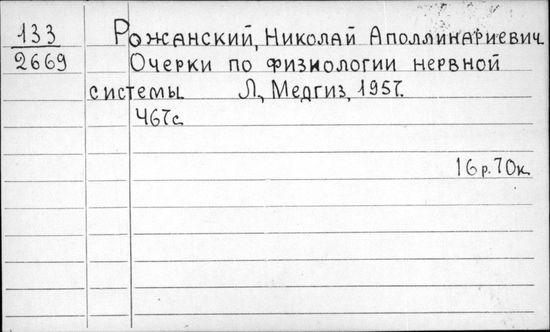 133 Рожанский, Николай Аполлинариевич.
2669 Очерки по физиологии нервной
системы Л, Медгиз, 1957.
467с.
16р.70к.